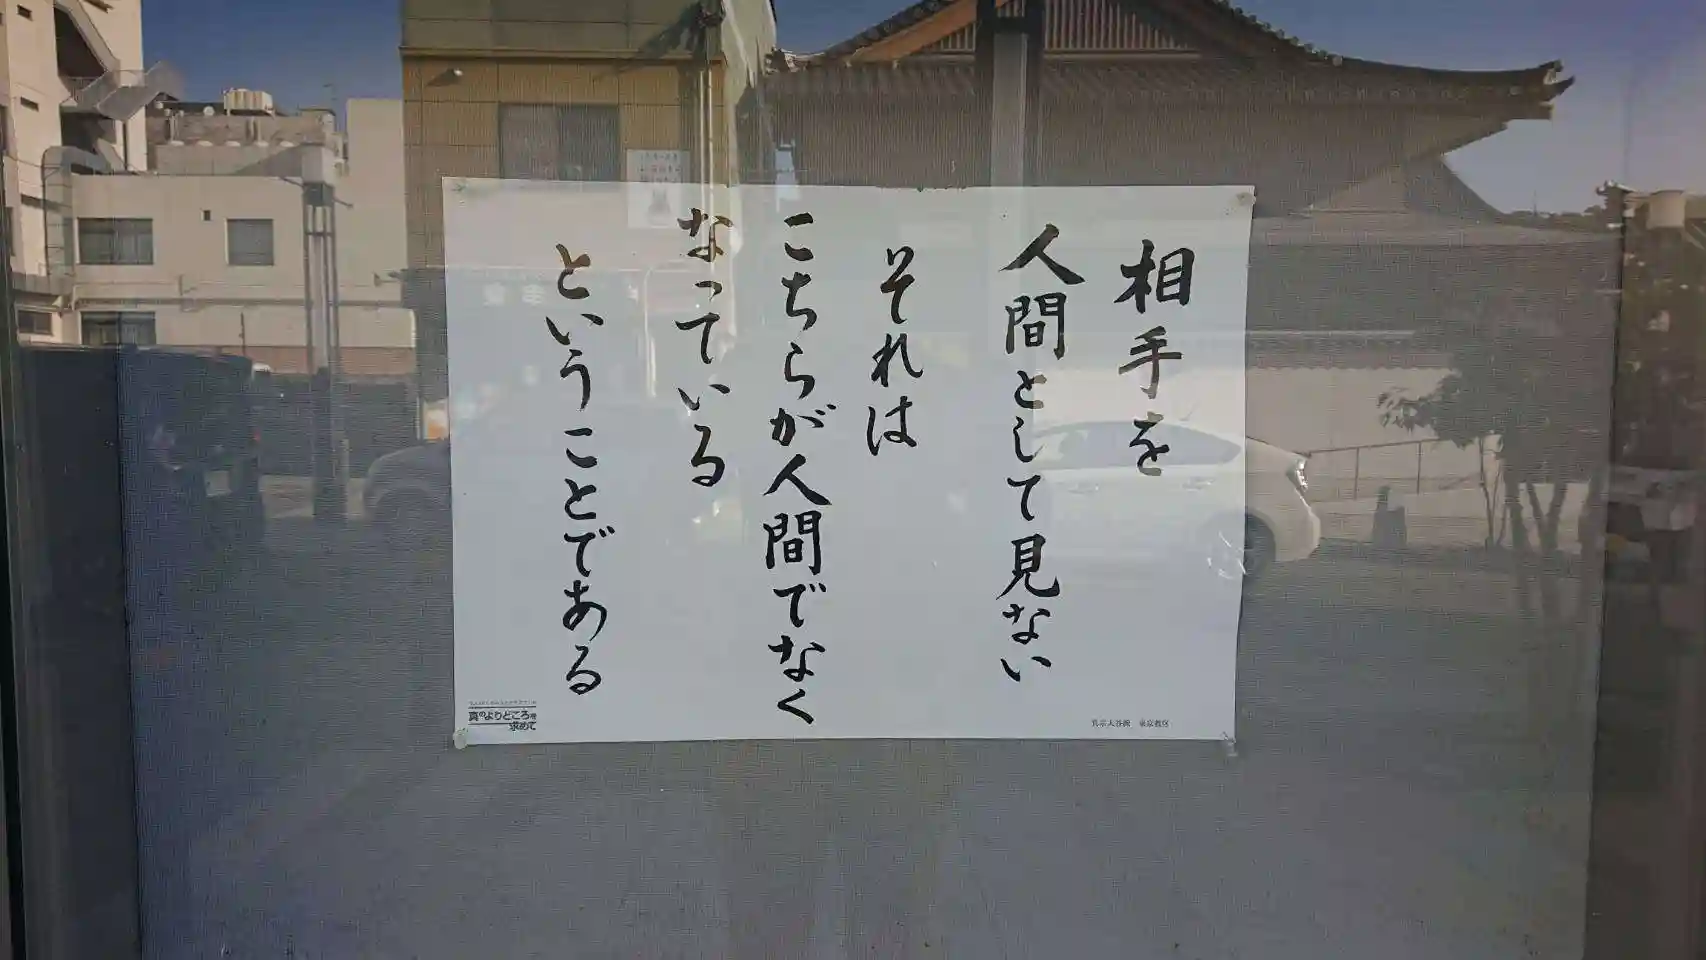 相手を
人間として見ない
それは
こちらが人間でなく
なっている
ということである
真のよりどころを
求めて
真宗大谷派 東京教区